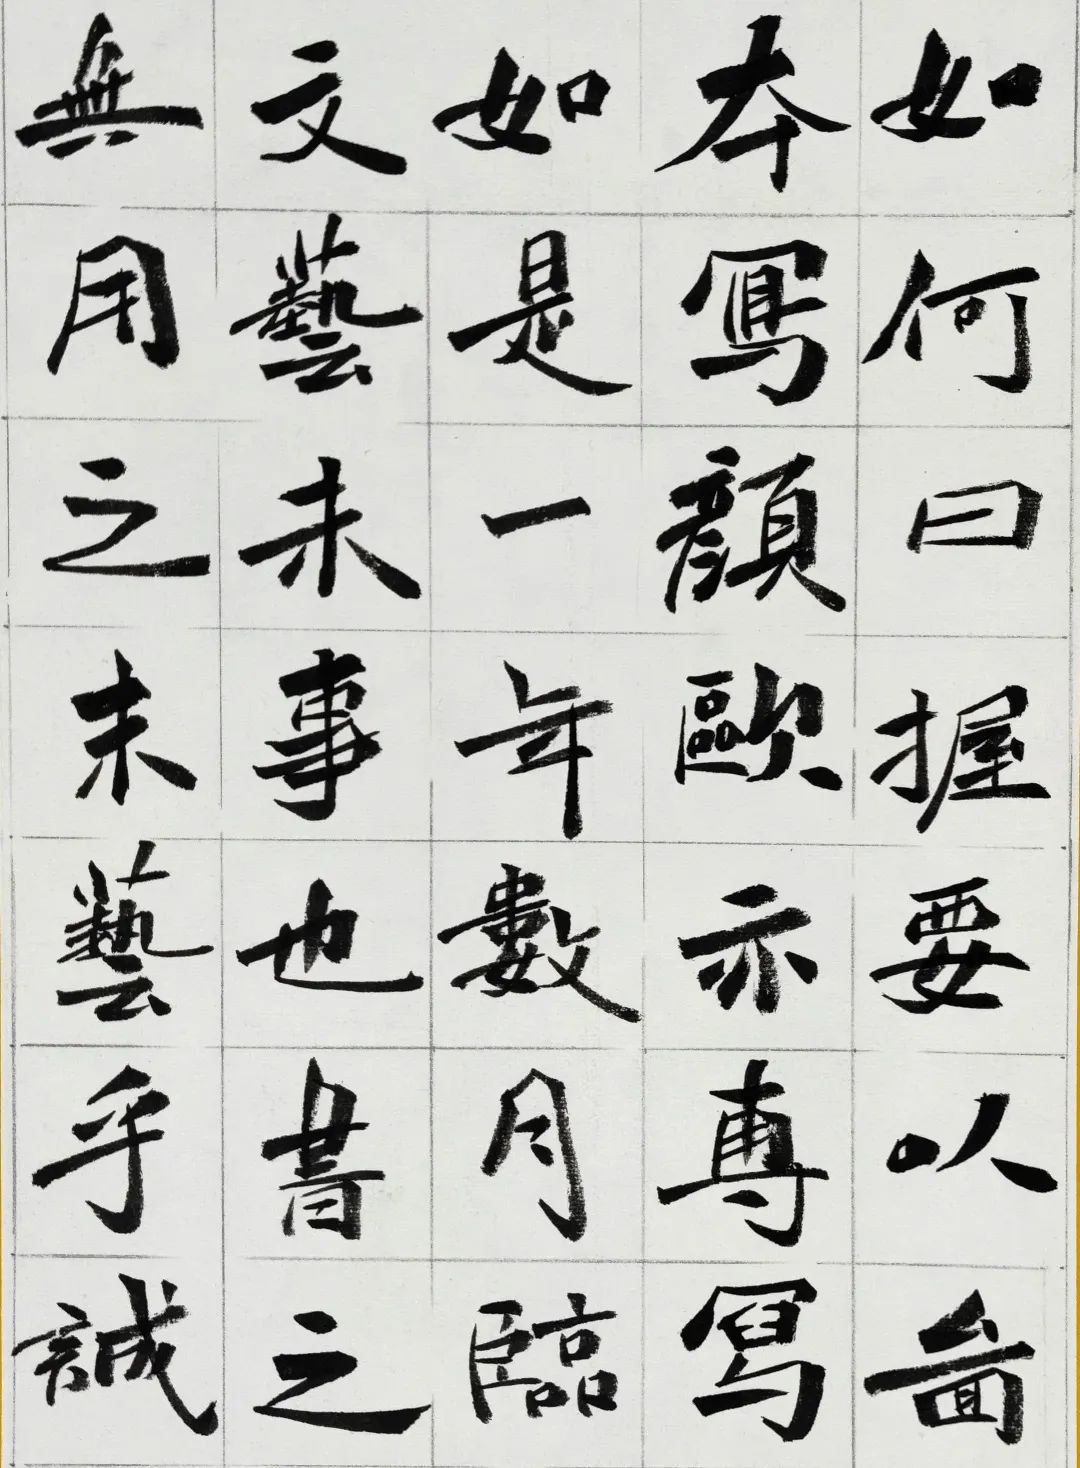 如何曰握要以啚
本寫顏歐亦專寫
如是一年數月臨
文藝末事也書之
無用之末藝乎誠